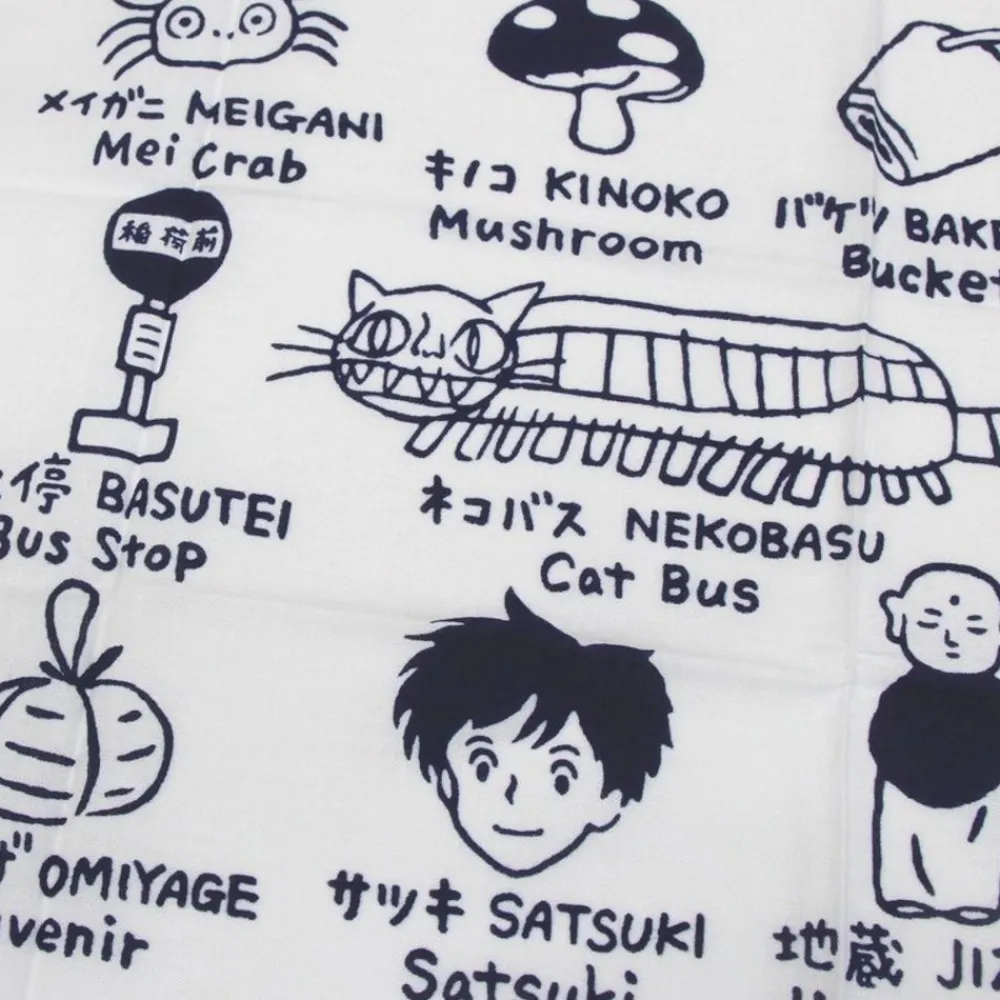 メイガニ MEIGANI
Mei Crab
キノコ KINOKO
Mushroom
バケツ BAKE
Bucket
稲荷前
停 BASUTEI
Bus Stop
ネコバス NEKOBASU
Cat Bus
OMIYAGE
venir
サツキ SATSUKI
Satsuki
地蔵 JIZ